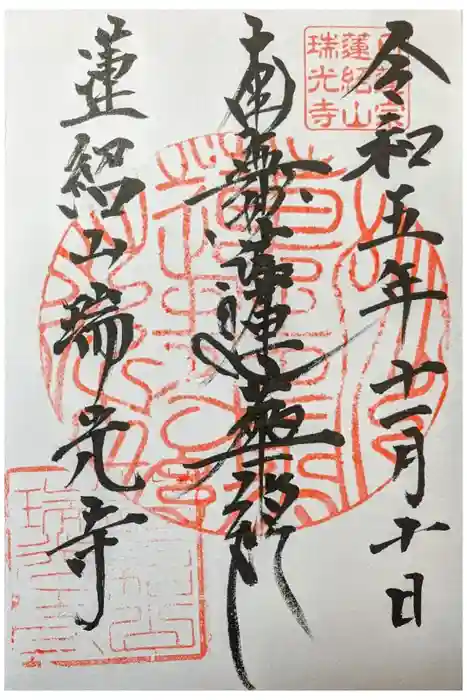 令和五年十一月十日
日蓮宗
蓮紹山
瑞光寺
南無妙法蓮華経
蓮紹山瑞光寺